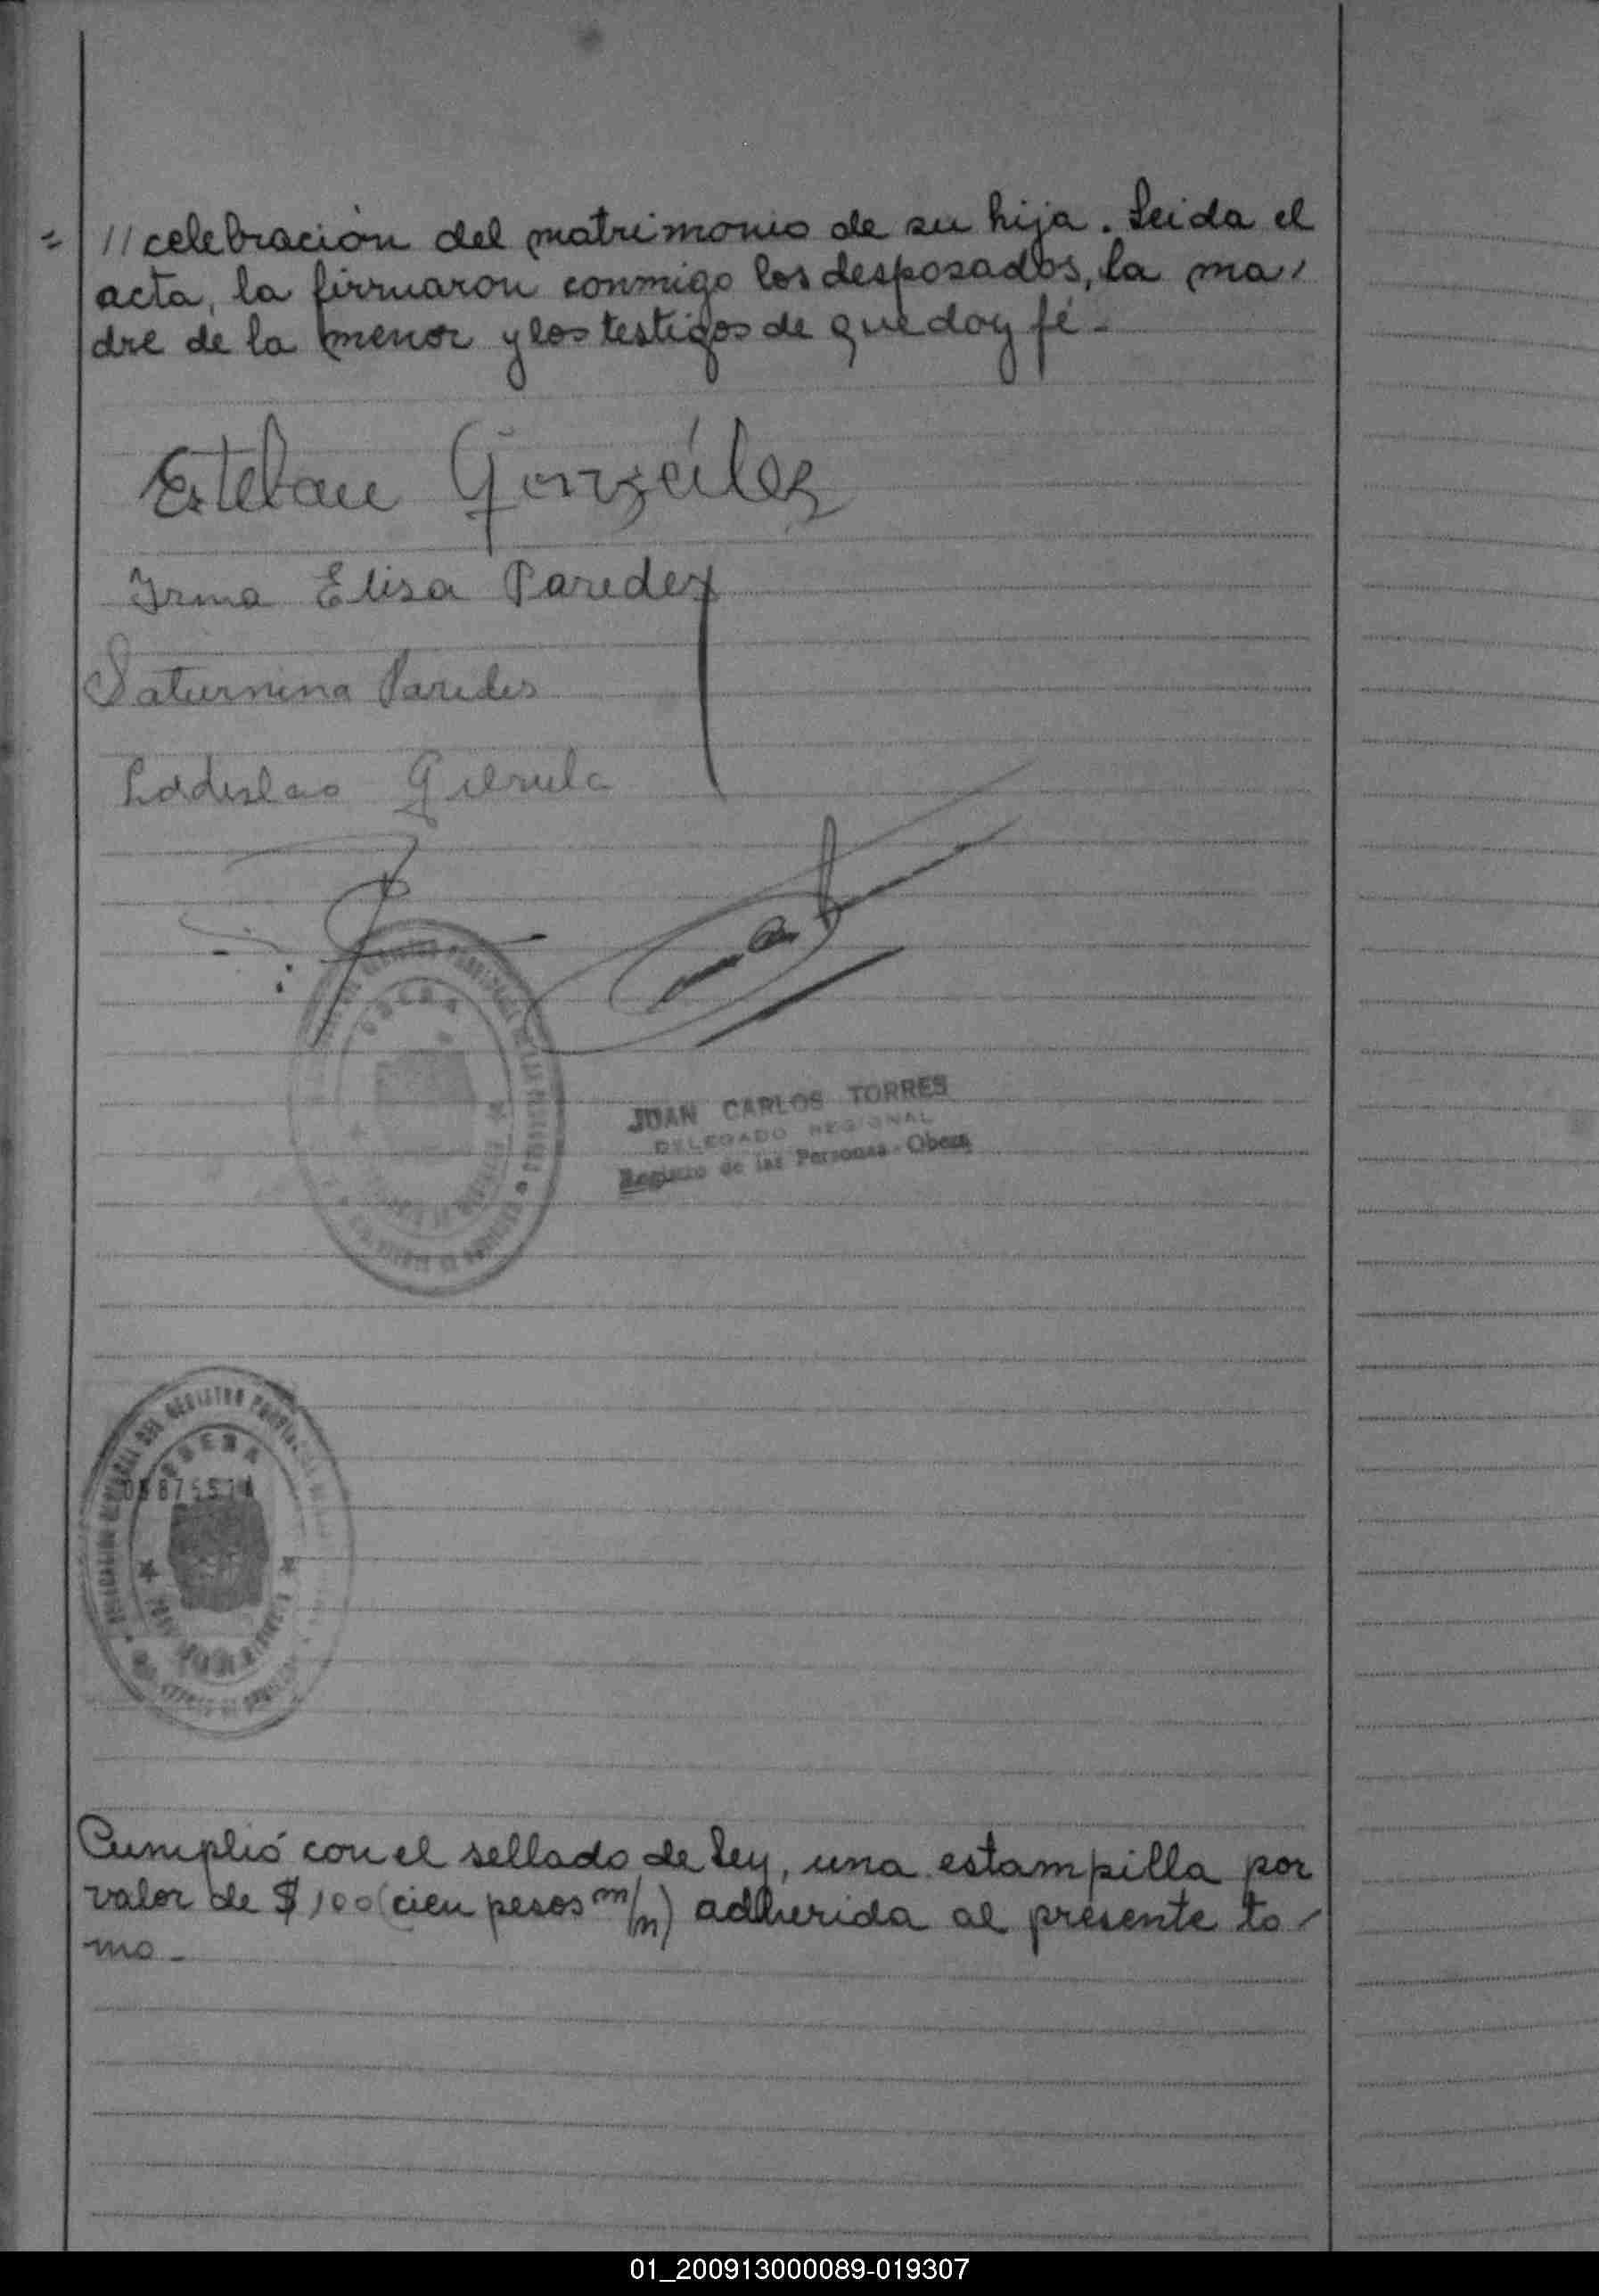 = // celebración del matrimonio de su hija. Leida el
acta, la firmaron conmigo los desposados, la ma/
dre de la menor y los testigos de que doy fé-
Esteban González
Irma Elisa Paredez
Saturnina Paredes
Ladislao
OBERA
JUAN CARLOS TORRES
DELEGADO REGIONAL
Registro de las Personas - Obera
DEL REGISTRO
OBERA
Cumplió con el sellado de Ley, una estampilla por
valor de $ 100 (cien pesos m/n) adherida al presente to-
mo-
01_200913000089-019307